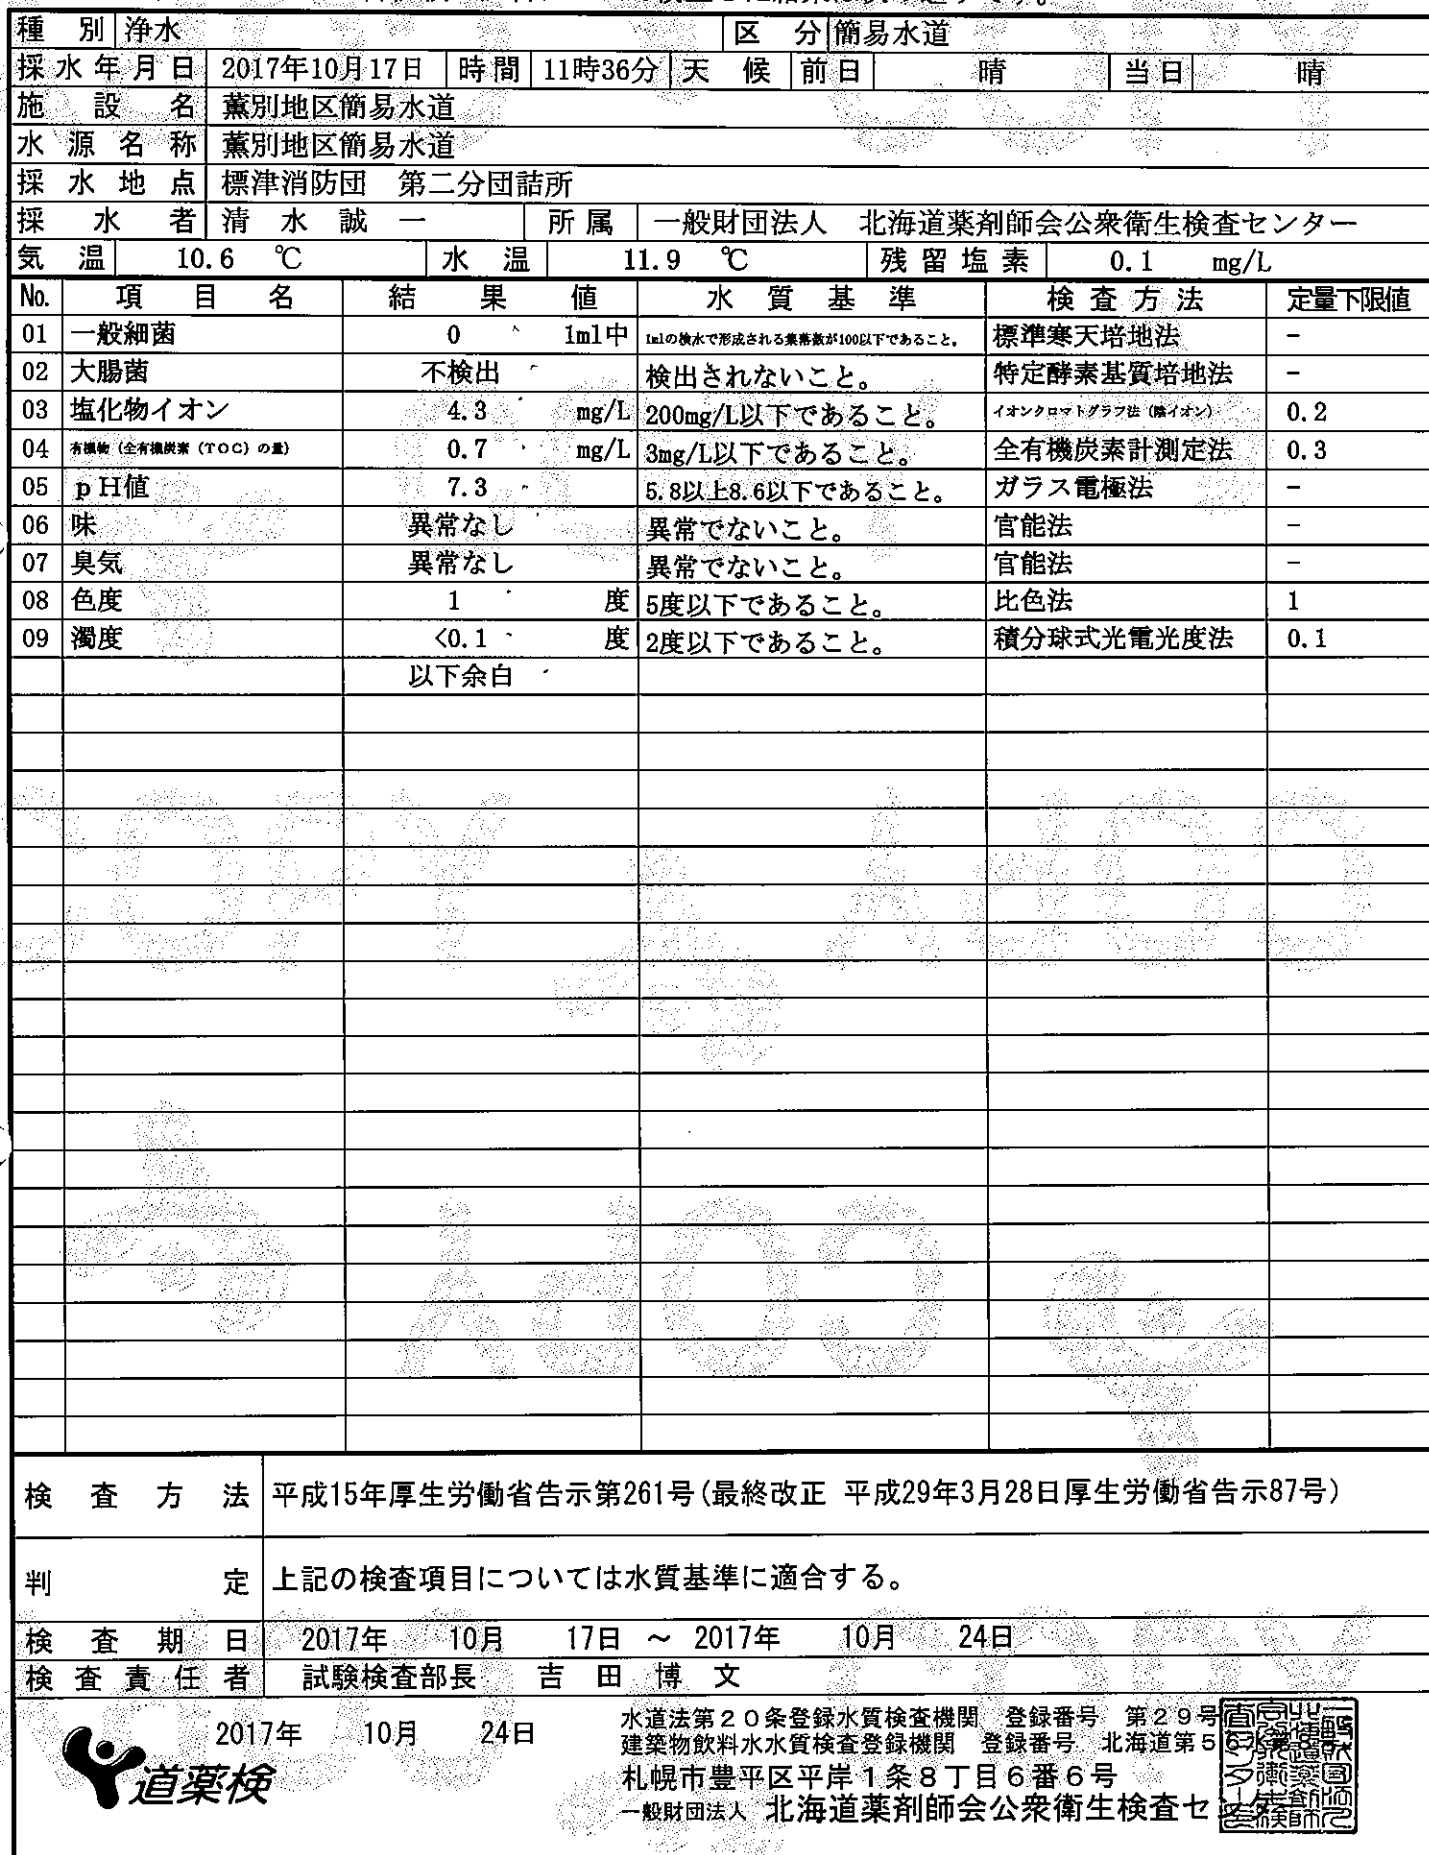 種別 浄水 区分 簡易水道
採水年月日 2017年10月17日 時間 11時36分 天候 前日 晴 当日 晴
施設名 薫別地区簡易水道
水源名称 薫別地区簡易水道
採水地点 標津消防団 第二分団詰所
採水者 清水誠一 所属 一般財団法人 北海道薬剤師会公衆衛生検査センター
気温 10.6 ℃ 水温 11.9 ℃ 残留塩素 0.1 mg/L
No. 項目名 結果値 水質基準 検査方法 定量下限値
01 一般細菌 0 1ml中 1mlの検水で形成される集落数が100以下であること。 標準寒天培地法 −
02 大腸菌 不検出 検出されないこと。 特定酵素基質培地法 −
03 塩化物イオン 4.3 mg/L 200mg/L以下であること。 イオンクロマトグラフ法（陰イオン） 0.2
04 有機物（全有機炭素（TOC）の量） 0.7 mg/L 3mg/L以下であること。 全有機炭素計測定法 0.3
05 pH値 7.3 5.8以上8.6以下であること。 ガラス電極法 −
06 味 異常なし 異常でないこと。 官能法 −
07 臭気 異常なし 異常でないこと。 官能法 −
08 色度 1 度 5度以下であること。 比色法 1
09 濁度 <0.1 度 2度以下であること。 積分球式光電光度法 0.1
以下余白
検査方法 平成15年厚生労働省告示第261号(最終改正 平成29年3月28日厚生労働省告示87号)
判定 上記の検査項目については水質基準に適合する。
検査期日 2017年 10月 17日 ～ 2017年 10月 24日
検査責任者 試験検査部長 吉田博文
2017年 10月 24日
道薬検
水道法第20条登録水質検査機関 登録番号 第29号
建築物飲料水水質検査登録機関 登録番号 北海道第5
札幌市豊平区平岸1条8丁目6番6号
一般財団法人 北海道薬剤師会公衆衛生検査セ